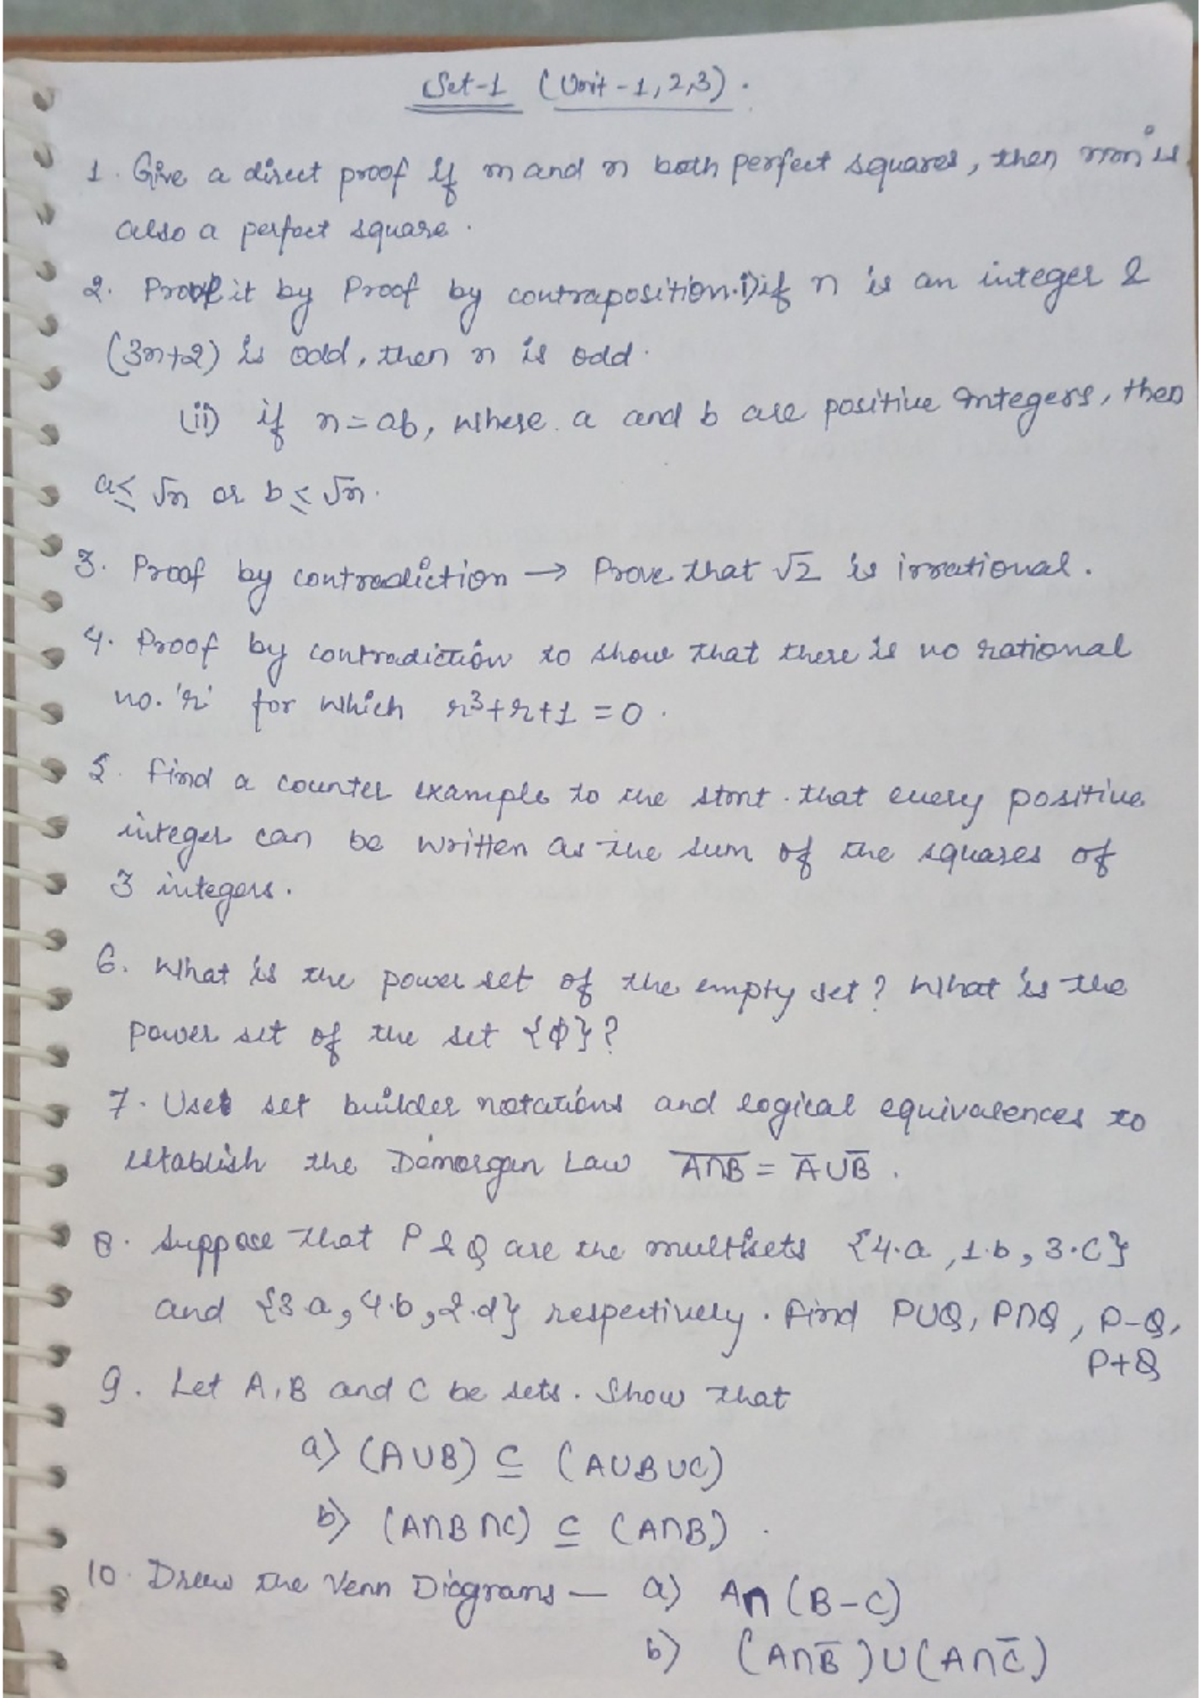 Set-1 (Unit-1,2,3).
1. Give a direct proof if m and n both perfect squares, then mn is
also a perfect square.
2. Proof it by Proof by contraposition. i) if n is an integer &
(3n+2) is odd, then n is odd.
(ii) if n=ab, where a and b are positive integers, then
a≤ √n or b ≤ √n.
3. Proof by contradiction → Prove that √2 is irrational.
4. Proof by contradiction to show that there is no rational
no. 'r' for which r³+r+1 = 0.
5. Find a counter example to the stmt. that every positive
integer can be written as the sum of the squares of
3 integers.
6. What is the power set of the empty set? What is the
power set of the set {ϕ}?
7. Use set builder notations and logical equivalences to
establish the Demorgan Law A̅∩̅B̅ = A̅∪B̅.
8. Suppose that P & Q are the multisets {4.a, 1.b, 3.c}
and {3.a, 4.b, 2.d} respectively. Find P∪Q, P∩Q, P-Q,
P+Q
9. Let A, B and C be sets. Show that
a) (A∪B) ⊆ (A∪B∪C)
b) (A∩B∩C) ⊆ (A∩B).
10. Draw the Venn Diagrams — a) A∩(B-C)
b) (A∩B̅)∪(A∩C̅)